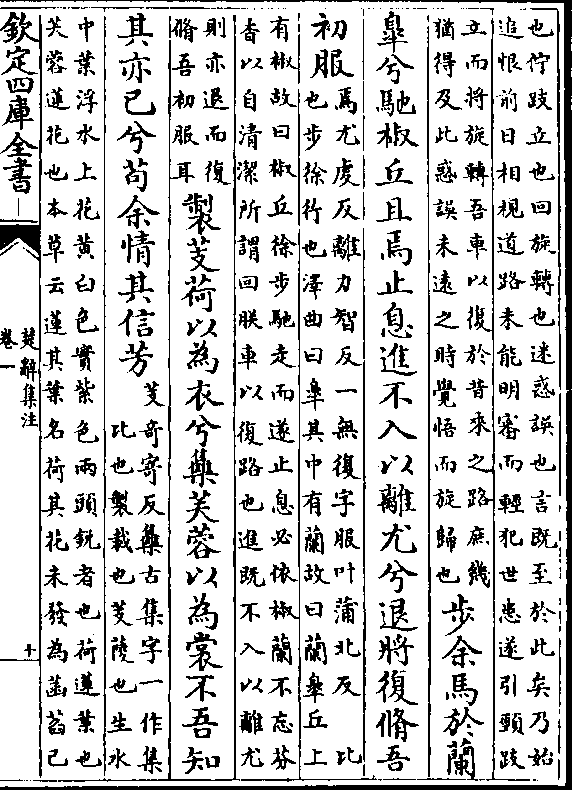 也佇跂立也回旋轉也迷惑誤也言既至於此矣乃始
追恨前日相視道路未能明審而輕犯世患遂引頸跂
立而將旋轉吾車以復於昔來之路庶幾
猶得及此惑誤未遠之時覺悟而旋歸也
步余馬於蘭
臯兮馳椒丘且焉止息進不入以離尤兮退將復脩吾
初服
焉尤虔反離力智反一無復字服叶蒲北反 比
也步徐行也澤曲曰臯其中有蘭故曰蘭臯丘上
有椒故曰椒丘徐步馳走而遂止息必依椒蘭不忘芬
香以自清潔所謂回朕車以復路也進既不入以離尤
則亦退而復
脩吾初服耳
製芰荷以為衣兮雧芙蓉以為裳不吾知
其亦已兮苟余情其信芳
芰奇寄反雧古集字一作集
比也製裁也芰蔆也生水
中葉浮水上花黄白色實紫色兩頭鋭者也荷蓮葉也
芙蓉蓮花也本草云蓮其葉名荷其花未發為菡萏已
欽定四庫全書
楚辭集注
卷一
十